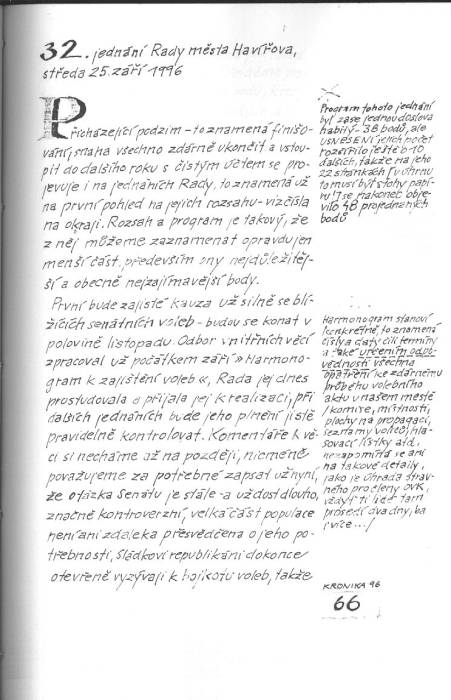 32. jednání Rady města Havířova,
středa 25. září 1996
Přicházející podzim – to znamená finišo-
vání, snaha všechno zdárně ukončit a vstou-
pit do dalšího roku s čistým účtem se pro-
jevuje i na jednáních Rady, to znamená už
na první pohled na jejich rozsahu – viz čísla
na okraji. Rozsah a program je takový, že
z něj můžeme zaznamenat opravdu jen
menší část, především ony nejdůležitěj-
ší a obecně nejzajímavější body.
První bude zajisté kauza už silně se blí-
žících senátních voleb – budou se konat v
polovině listopadu. Odbor vnitřních věcí
zpracoval už počátkem září » Harmono-
gram k zajištění voleb «, Rada jej dnes
prostudovala a přijala jej k realizaci, při
dalších jednáních bude jeho plnění jistě
pravidelně kontrolovat. Komentáře k vě-
ci si necháme až na později, nicméně
považujeme za potřebné zapsat už nyní,
že otázka Senátu je stále – a už dost dlouho,
značně kontroverzní, velká část populace
není ani zdaleka přesvědčena o jeho po-
třebnosti, Sládkovi republikáni dokonce
otevřeně vyzývají k bojkotu voleb, takže
Program tohoto jednání
byl zase jednou doslova
habilý – 38 bodů, ale
USNESENÍ jejich počet
rozšířilo ještě o 10
dalších, takže na jeho
22 stránkách (v úhrnu
to musí být stohy papí-
ru!) se nakonec obje-
vilo 48 projednaných
bodů
Harmonogram stanoví
konkrétně, to znamená
čísly a daty čili termíny
a také určením odpo-
vědnosti všechna
opatření ke zdárnému
průběhu volebního
aktu v našem městě
/ komise, místnosti,
plochy na propagaci,
seznamy voličů, hla-
sovací lístky atd.,
nezapomíná se ani
na takové detaily,
jako je úhrada strav-
ného pro členy OVK,
vždyť ti lidé tam
prosedí dva dny, ba
i více...!
KRONIKA 96
66